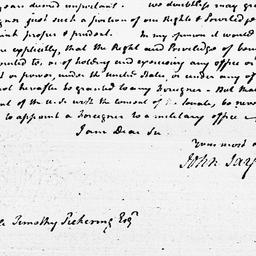 deemed important. We doubtless may gra
just such a portion of our Rights & Privileges
think proper & prudent. In my opinion it would
explicitly, that the Right and Priviledge of bein
to, or of holding and exercising any office or
or power, under the United States, or under any of
not hereafter be granted to any Foreigner - But that
of the U.S. with the consent of the Senate, to new
to appoint a Foreigner to a military office
I am Dear Sir
Your most o
John Jay
Timothy Pickering Esqr